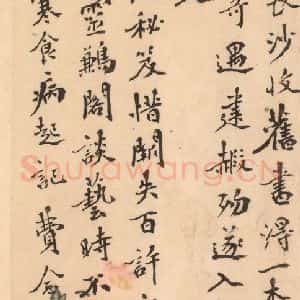 長沙收舊書得一本
遇建殉遂入
秘笈惜閒失百許
靈鶼閣談藝時不
寒食病起記 費念
Shufawang.CN